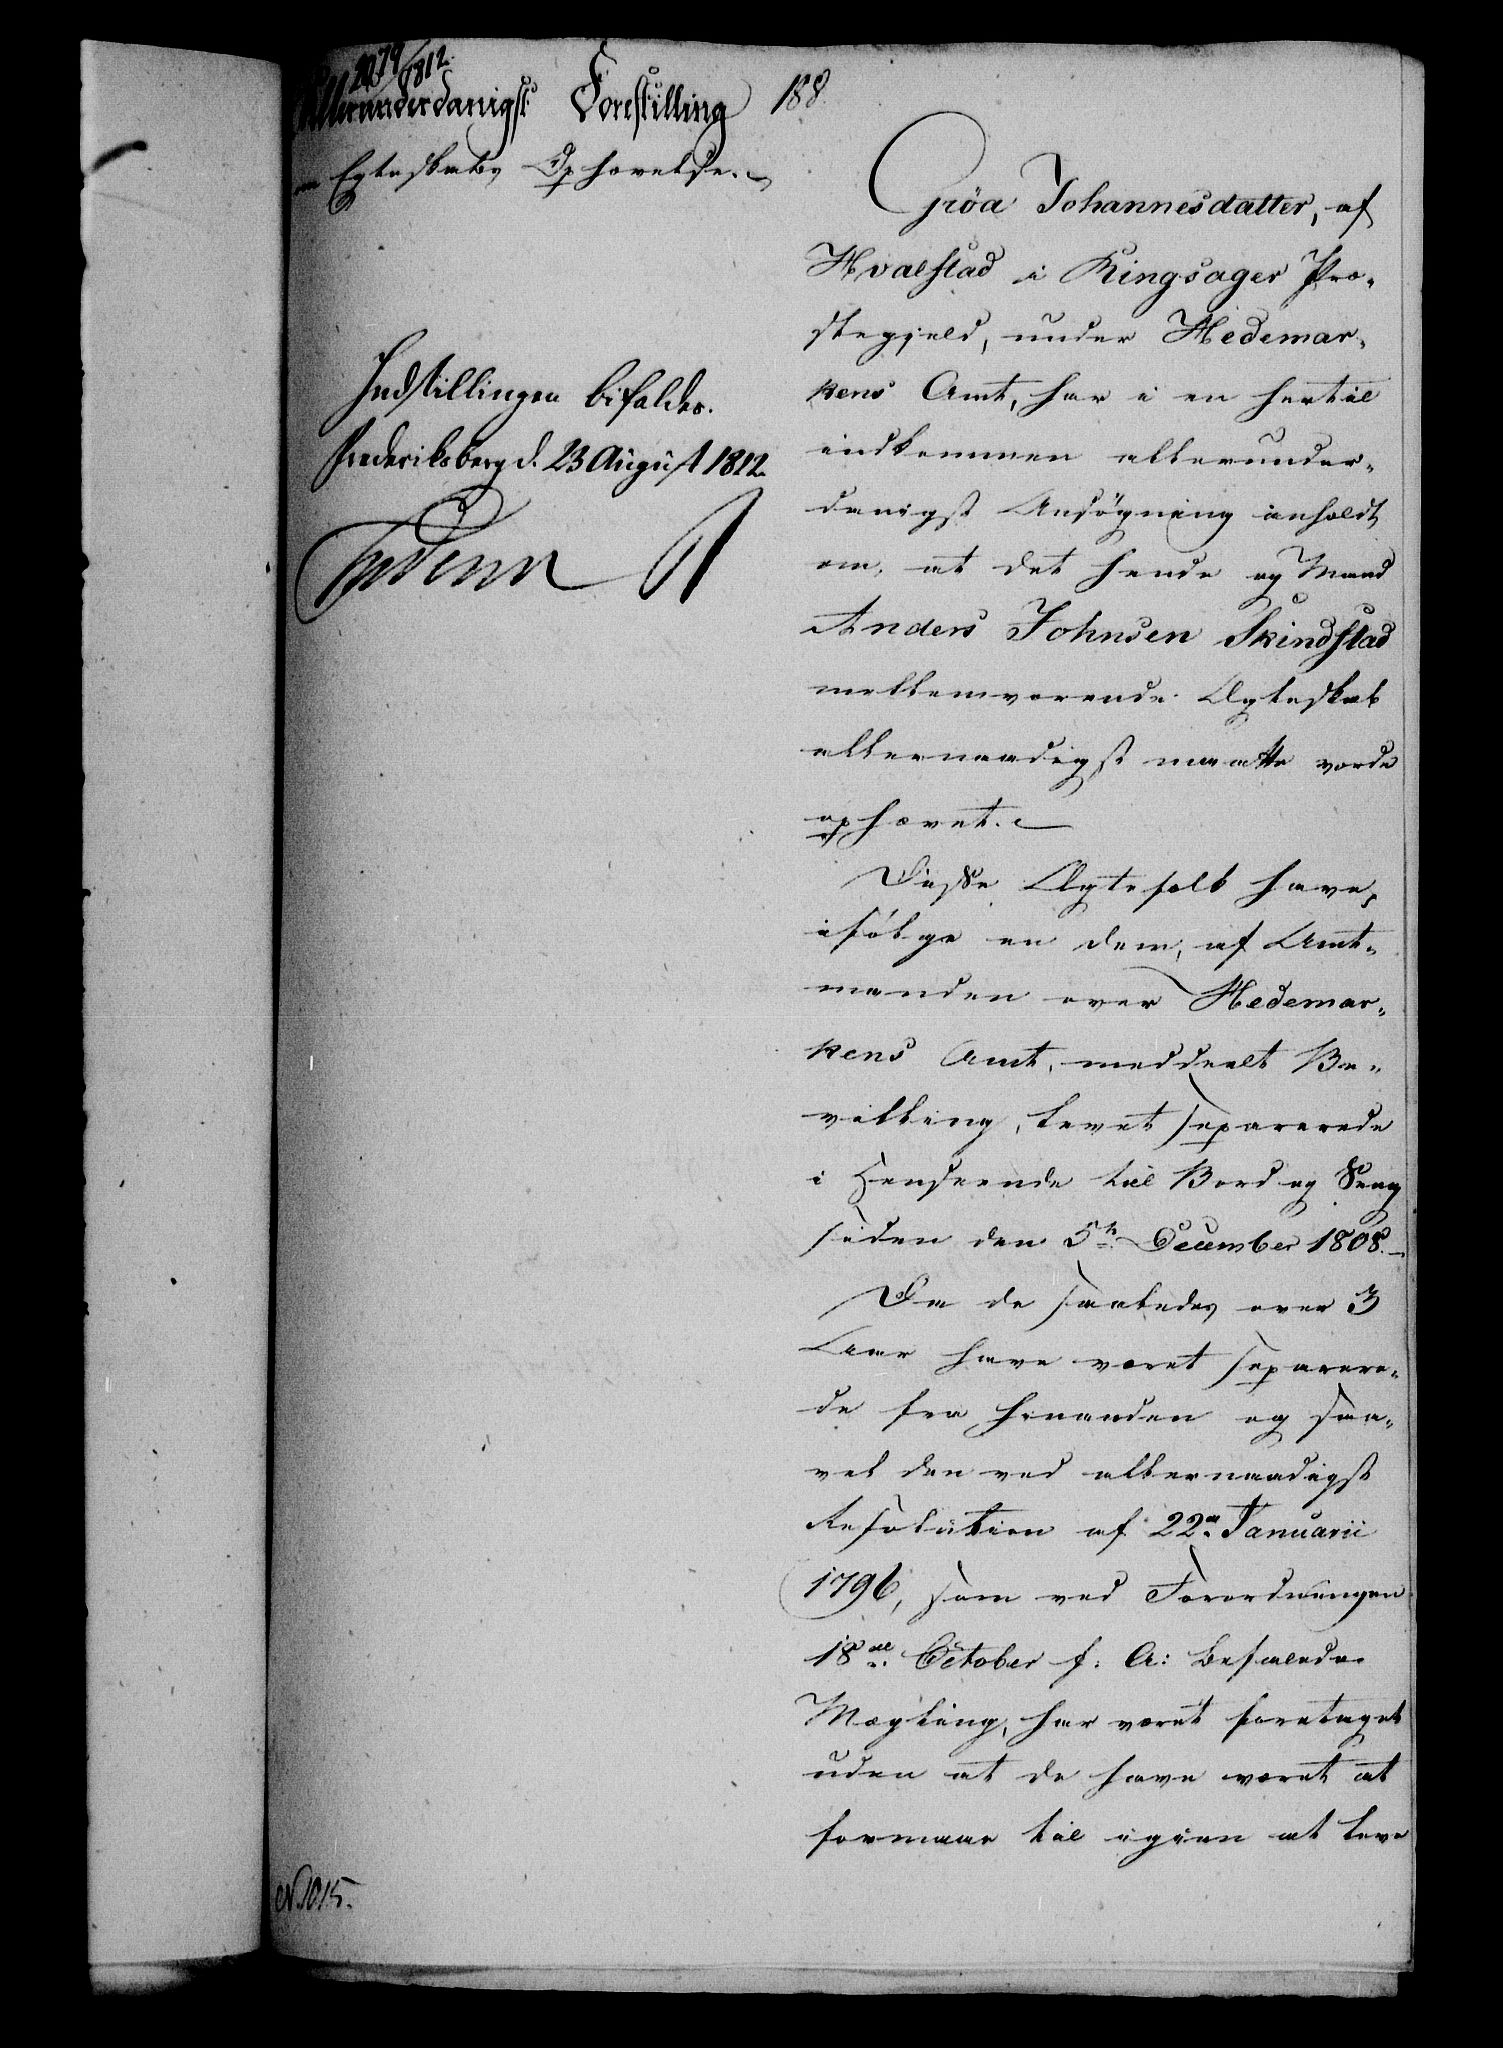 2079/1812.
Allerunderdanigst Forestilling
188
om Egteskabs Ophævelse.
Indstillingen bifaldes.
Frederiksberg d. 23 August 1812.
Gröa Johannesdatter, af
Hvalstad i Ringsager Præ-
stegjeld, under Hedemar-
kens Amt, har i en hertil
indkommen allerunder-
danigst Ansögning anholdt
om, at det hende og Mand
Anders Johnsen Skindstad
mellemværende Ægteskab
allernaadigst maatte vorde
ophævet.
Disse Ægtefolk have,
ifölge en dem, af Amt-
manden over Hedemar-
kens Amt, meddeelt Be-
villing, levet separerede
i Henseende til Bord og Seng
siden den 5te December 1808.
Da de saaledes over 3
Aar have været separere-
de fra hinanden og saa-
vel den ved allernaadigst
Resolution af 22de Januarii
1796, som ved Forordningen
18de October f: A: befalede
Mægling, har været foretaget
uden at de have været at
formaae til igien at leve
N. 1015.